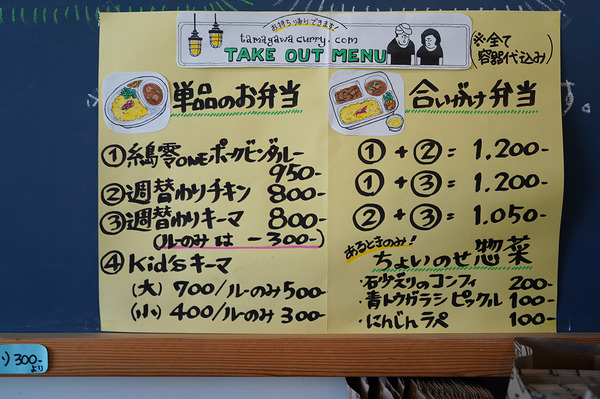 お持ち帰りできます!
tamagawacurry.com
TAKE OUT MENU
※全て
容器代込み)
単品のお弁当
①糸島雫ONEポークビンダルー
950-
②週替わりチキン 800-
③週替わりキーマ 800-
(ルーのみは -300-)
④Kid'sキーマ
(大) 700/ルーのみ500-
(小) 400/ルーのみ300-
合いがけ弁当
①+②= 1.200-
①+③= 1.200-
②+③= 1.050-
あるときのみ!
ちょいのせ惣菜
・石少ズリのコンフィ 200-
・青トウガラシピックル 100-
・にんじんラペ 100-
) 300-
より